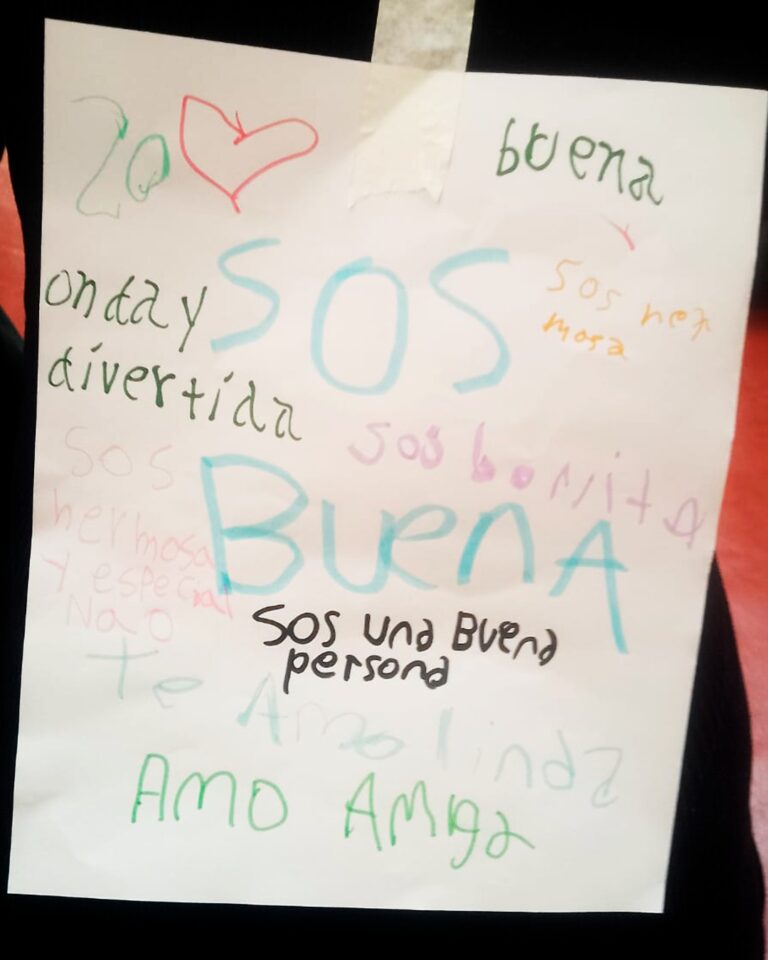 buena
onda y
divertida
SOS
BuenA
Sos her
mosa
sos bonita
SOS
hermosa
y especial
Nao
Sos una Buena
persona
Te Amo linda
AMO AMiga